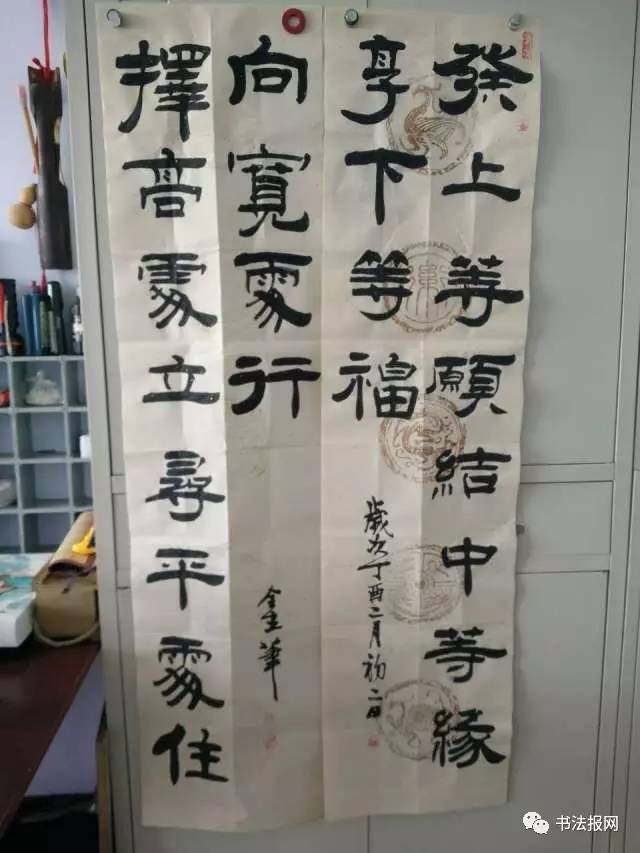 發上等願結中等緣
享下等福
歲次丁酉二月初二日
擇高處立尋平處住
向寬處行
金華
书法报网